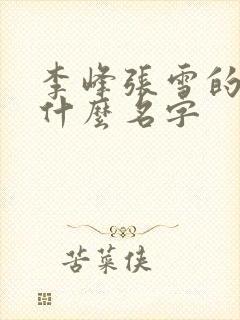 李峰張雪的
什麼名字
苦菜俠